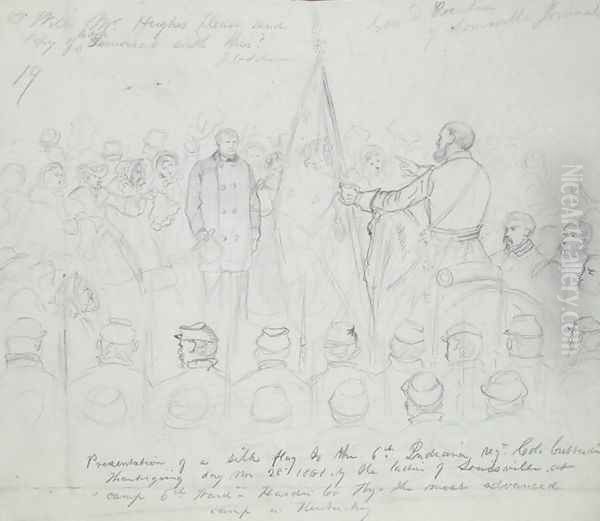 Will Mr Hughes please send
copy of Tomorrow with this?
of Louisville Journal
19
Presentation of a silk flag to the 6th Indiana regt Col.
Thanksgiving day Nov. 28th 1861 by the ladies of Louisville at
camp 6th Ward Hardin Co Ky. the most advanced
camp in Kentucky
NiceArtGallery.com